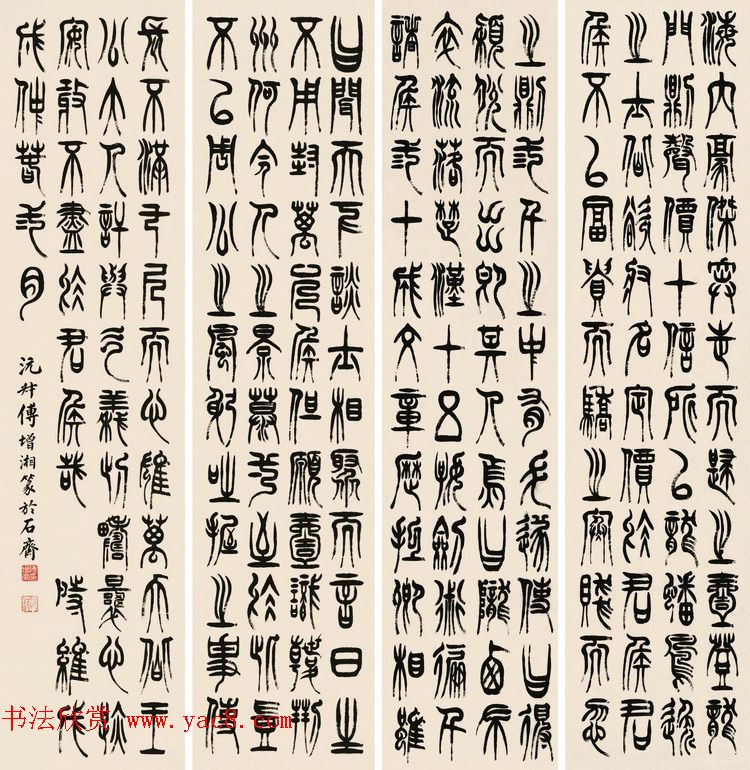 海内豪傑奔走而歸之壹登龍
門則聲價十倍所以龍蟠鳳逸
之士皆欲收名定價於君侯君
侯不以富貴而驕之寒賤而忽
之則三千之中有毛遂使白得
穎脫而出即其人焉白隴西布
衣流落楚漢十五好劍術徧干
諸侯三十成文章歷抵卿相雖
白聞天下談士相聚而言曰生
不用封萬戶侯但願壹識韓荊
州何令人之景慕壹至於此豈
不以周公之風躬吐握之事使
長不滿七尺而心雄萬夫皆王
公大人許與气義此疇曩心跡
安敢不盡於君侯哉 時維戊
戌仲春三月
沅叔傅增湘篆於石齋
书法欣赏 www.yac8.com